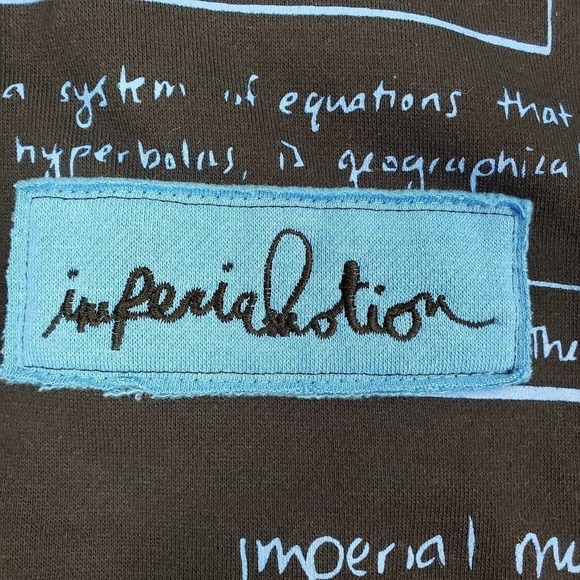 a system of equations that
hyperbolas, is geographical
imperial motion
The
imperial m